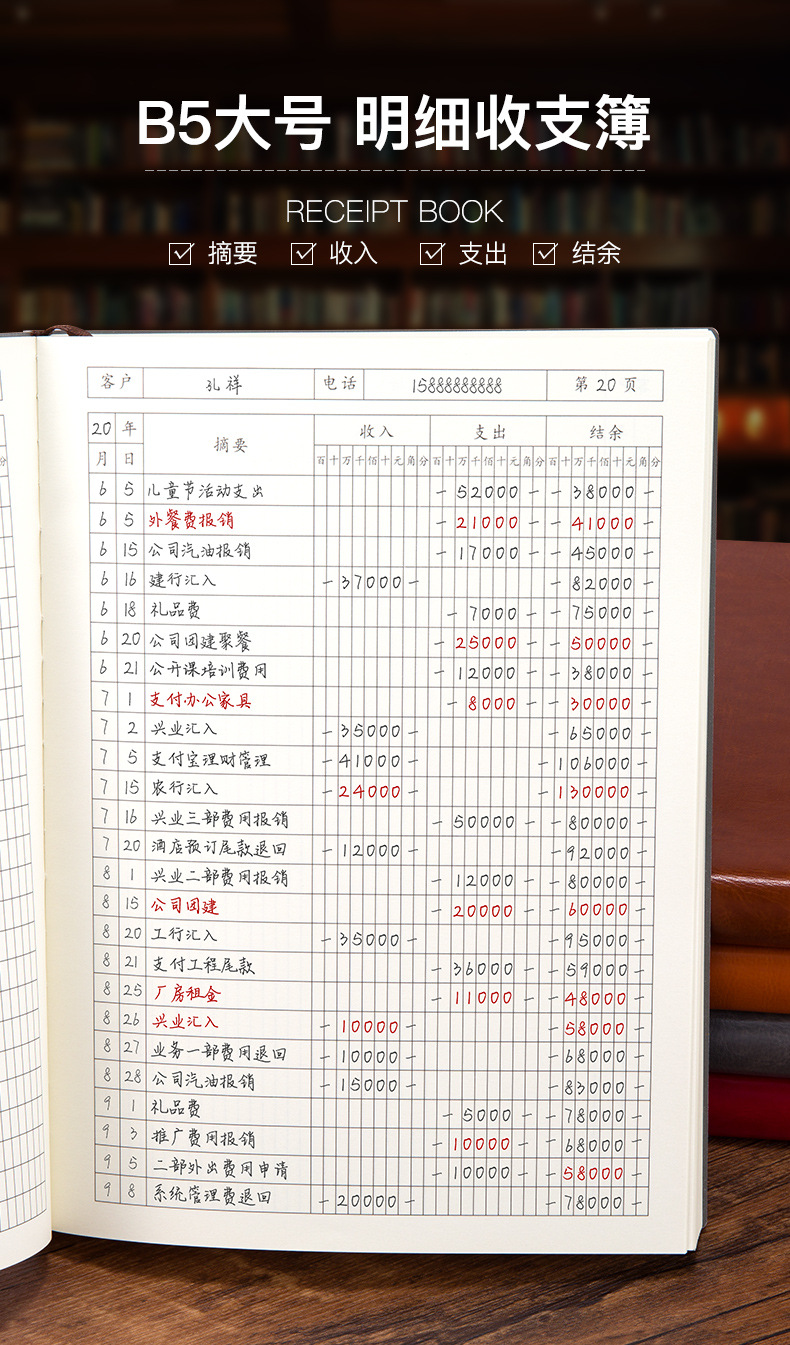 B5大号 明细收支簿
RECEIPT BOOK
摘要 收入 支出 结余
客户 孔祥 电话 15888888888 第 20 页
20 年 摘要 收入 支出 结余
月 日 百十万千佰十元角分 百十万千佰十元角分 百十万千佰十元角分
6 5 儿童节活动支出 -52000- -38000-
6 5 外餐费报销 -21000- -41000-
6 15 公司汽油报销 -17000- -45000-
6 16 建行汇入 -37000- -82000-
6 18 礼品费 -7000- -75000-
6 20 公司团建聚餐 -25000- -50000-
6 21 公开课培训费用 -12000- -38000-
7 1 支付办公家具 -8000- -30000-
7 2 兴业汇入 -35000- -65000-
7 5 支付宝理财管理 -41000- -106000-
7 15 农行汇入 -24000- -130000-
7 16 兴业三部费用报销 -50000- -80000-
7 20 酒店预订尾款退回 -12000- -92000-
8 1 兴业二部费用报销 -12000- -80000-
8 15 公司团建 -20000- -60000-
8 20 工行汇入 -35000- -95000-
8 21 支付工程尾款 -36000- -59000-
8 25 厂房租金 -11000- -48000-
8 26 兴业汇入 -10000- -58000-
8 27 业务一部费用退回 -10000- -68000-
8 28 公司汽油报销 -15000- -83000-
9 1 礼品费 -5000- -78000-
9 3 推广费用报销 -10000- -68000-
9 5 二部外出费用申请 -10000- -58000-
9 8 系统管理费退回 -20000- -78000-